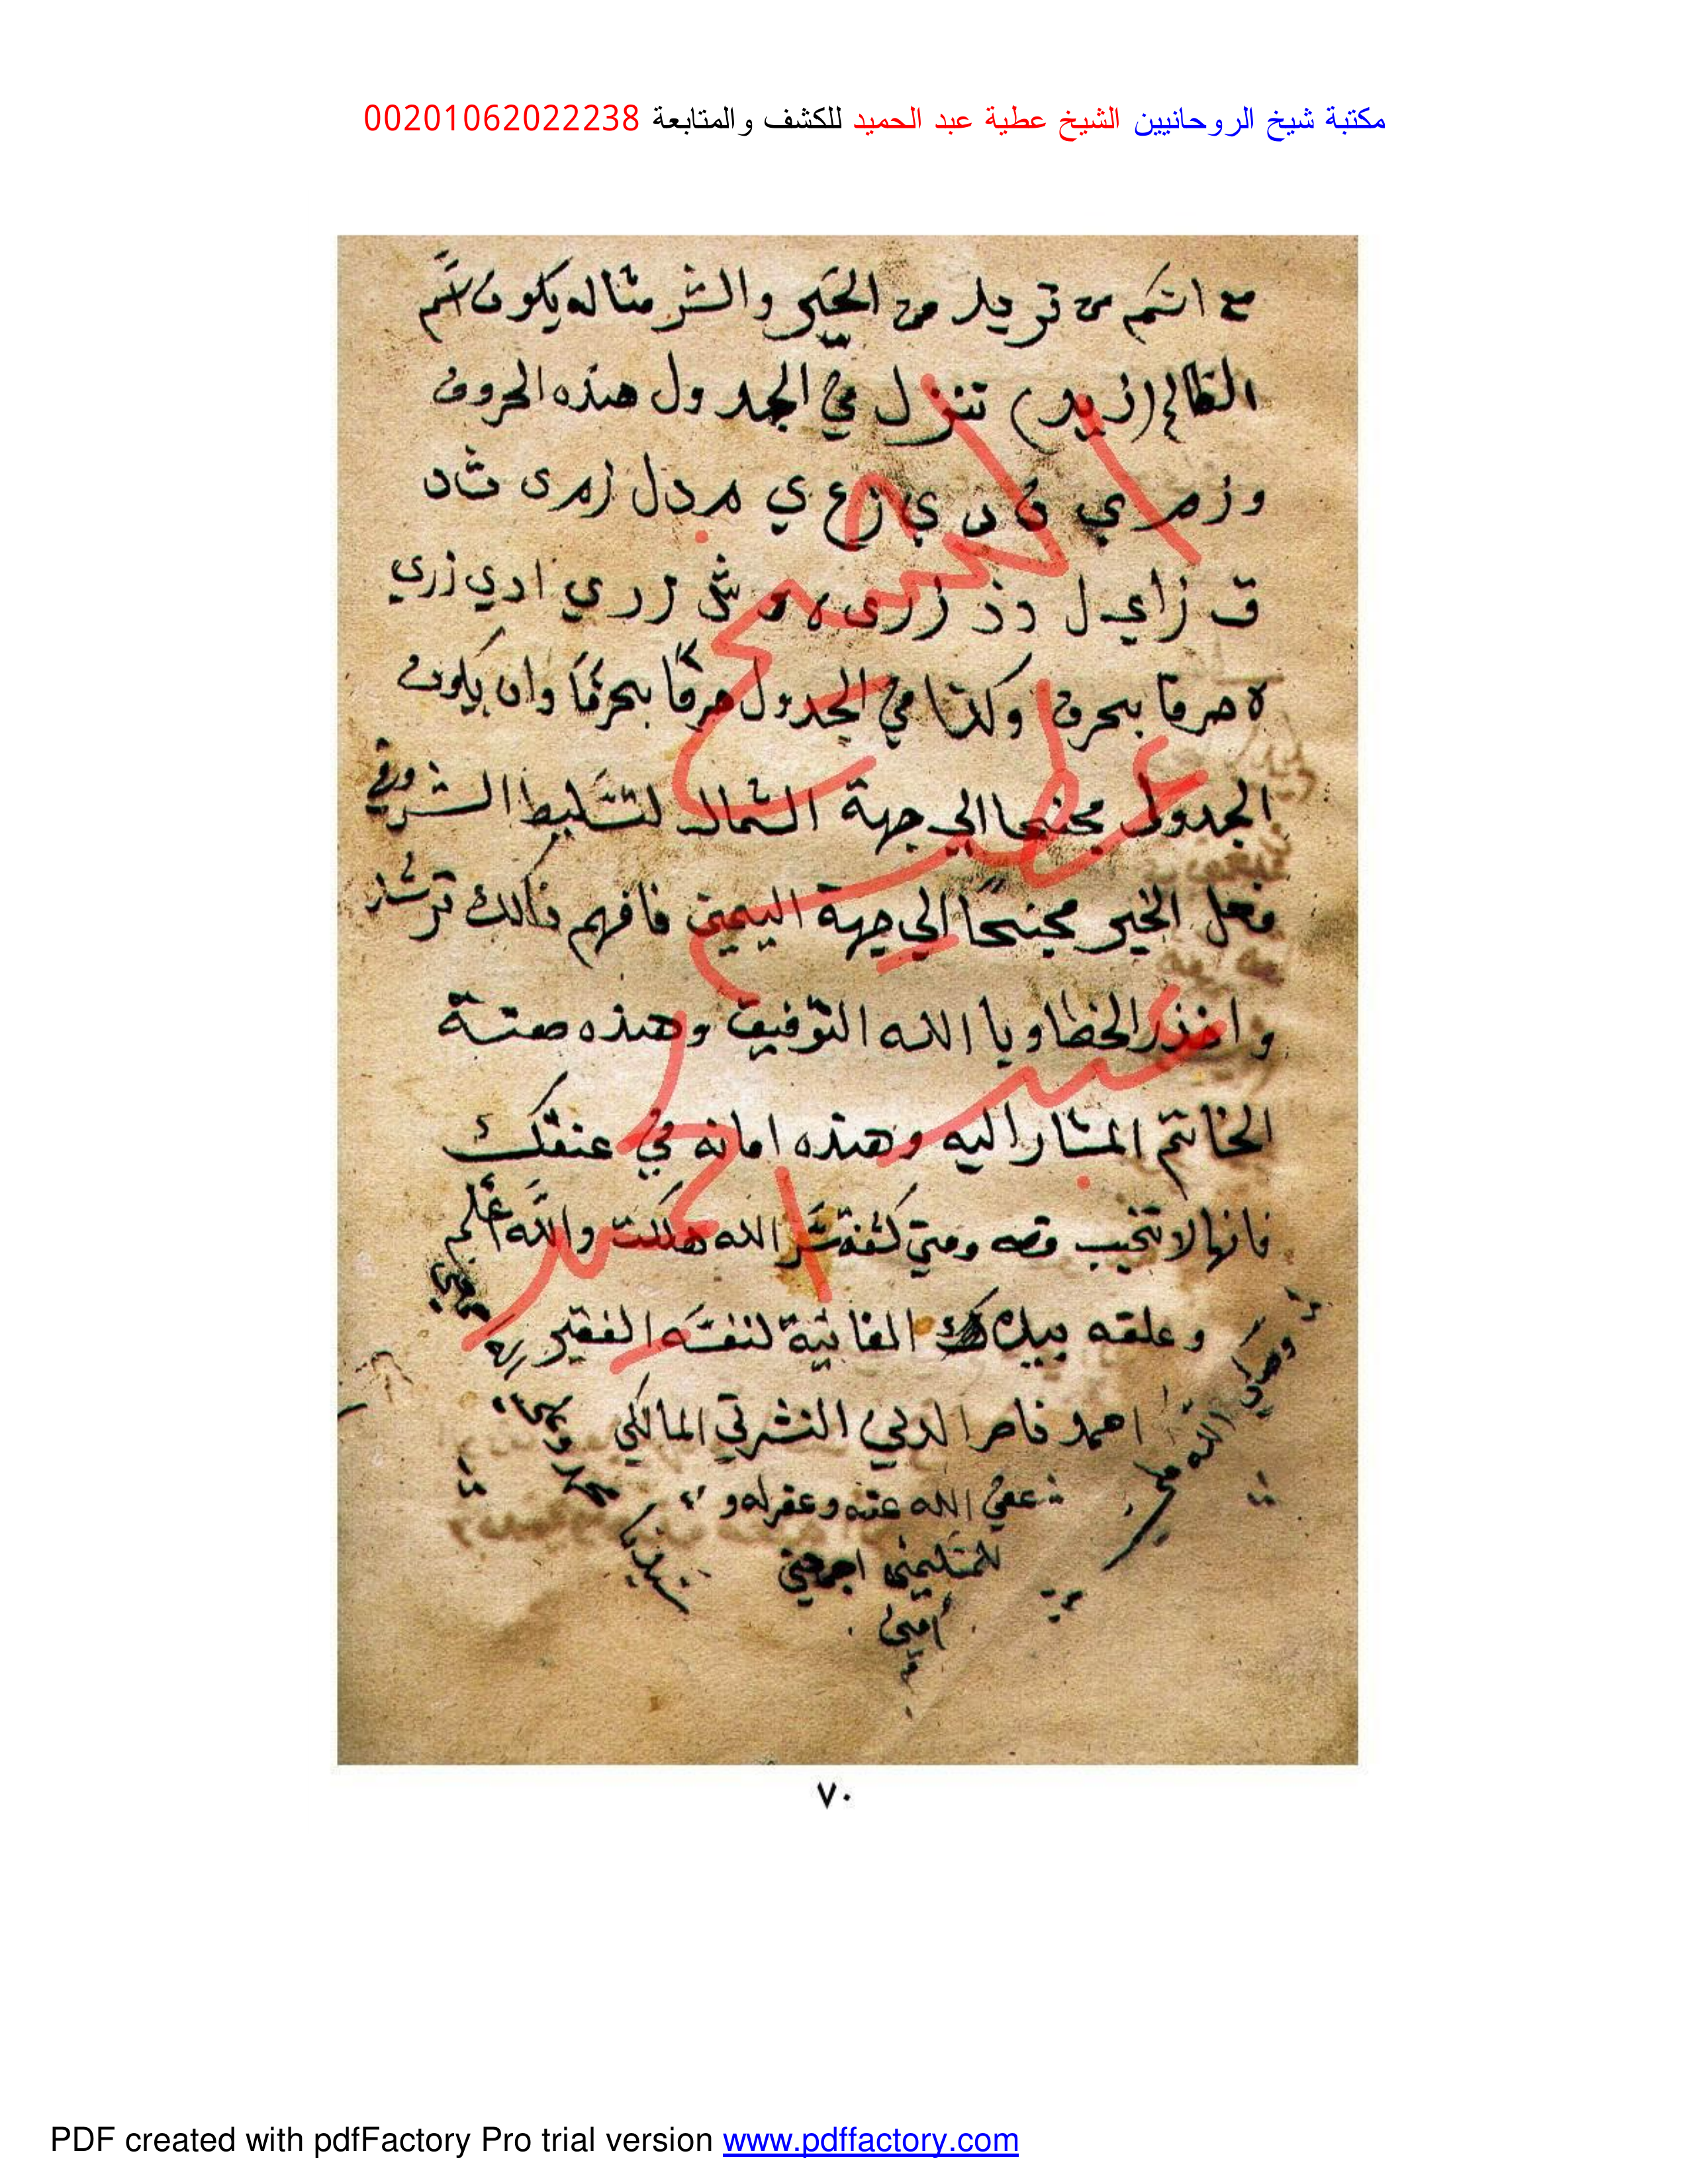 مكتبة شيخ الروحانيين الشيخ عطية عبد الحميد للكشف والمتابعة 00201062022238
مع اسم من تريد من الخير والشر مثاله يكون اسم
الظالم (زيد) تنزل في الجدول هذه الحروف
و ز م ر ي ف د ي ز ع ي م د ل ز م ى ث د
ق ز ا ي ل د ذ ز ر ى ه و ش ز ر ي ا د ي ز ر ي
ه حرفا بحرف وكذا في الجدول حرفا بحرفا وان يكون
الجدول مجنحا الي جهة الشمال لتسليط الشر وفي
فعل الخير مجنحا الي جهة اليمين فافهم ذالك ترشد
واحذر الخطا وبا الله التوفيق وهذه صفة
الخاتم المشار اليه وهذه امانه في عنقك
فانها لا تخيب قصه ومتي كشفة سر الله هلكت والله اعلم
وعلقه بيده الفانية لنفسه الفقير
احمد الدلي المالكي
عفي الله عنه وغفر له و
للمسلمين اجمعين
امين
وصلي الله علي
سيدنا
محمد
وصحبه
الشيخ
عطية
عبد
الحميد
٧٠
PDF created with pdfFactory Pro trial version www.pdffactory.com